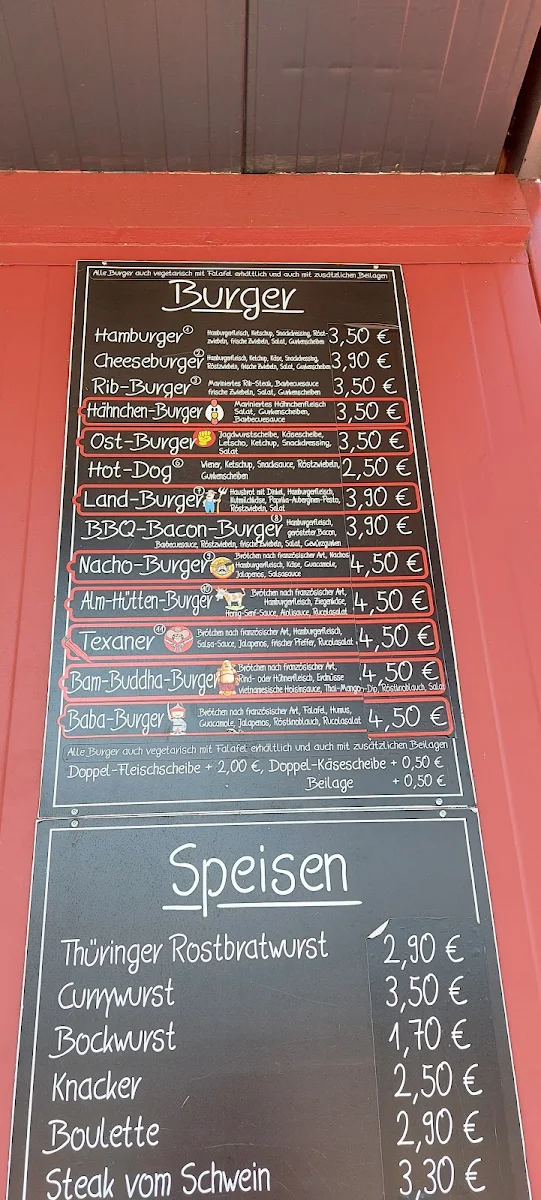 Alle Burger auch vegetarisch mit Falafel erhältlich und auch mit zusätzlichen Beilagen
Burger
Hamburger 1 Hamburgerfleisch, Ketchup, Snackdressing, Röst- 3,50 €
zwiebeln, frische Zwiebeln, Salat, Gurkenscheiben
Cheeseburger 2 Hamburgerfleisch, Ketchup, Käse, Snackdressing, 3,90 €
Röstzwiebeln, frische Zwiebeln, Salat, Gurkenscheiben
Rib-Burger 3 Mariniertes Rib-Steak, Barbecuesauce 3,50 €
frische Zwiebeln, Salat, Gurkenscheiben
Hähnchen-Burger Mariniertes Hähnchenfleisch 3,50 €
Salat, Gurkenscheiben,
Barbecuesauce
Ost-Burger Jagdwurstscheibe, Käsescheibe, 3,50 €
Letscho, Ketchup, Snackdressing,
Salat
Hot-Dog 6 Wiener, Ketchup, Snacksauce, Röstzwiebeln, 2,50 €
Gurkenscheiben
Land-Burger 7 Hausbrot mit Dinkel, Hamburgerfleisch, 3,90 €
Kuhmilchkäse, Paprika-Auberginen-Pesto,
Röstzwiebeln, Salat
BBQ-Bacon-Burger 8 Hamburgerfleisch, 3,90 €
gerösteter Bacon,
Barbecuesauce, Röstzwiebeln, frische Zwiebeln, Salat, Gewürzgurken
Nacho-Burger 9 Brötchen nach französischer Art, Nachos 4,50 €
Hamburgerfleisch, Käse, Guacamole,
Jalapenos, Salsasauce
Alm-Hütten-Burger 10 Brötchen nach französischer Art, 4,50 €
Hamburgerfleisch, Ziegenkäse,
Honig-Senf-Sauce, Aiolisauce, Rucolasalat
Texaner 11 Brötchen nach französischer Art, Hamburgerfleisch, 4,50 €
Salsa-Sauce, Jalapenos, frischer Pfeffer, Rucolasalat
Bam-Buddha-Burger Brötchen nach französischer Art, 4,50 €
Rind- oder Hühnerfleisch, Erdnüsse
vietnamesische Hoisinsauce, Thai-Mango-Dip, Röstknoblauch, Salat
Baba-Burger Brötchen nach französischer Art, Falafel, Humus, 4,50 €
Guacamole, Jalapenos, Röstknoblauch, Rucolasalat
Alle Burger auch vegetarisch mit Falafel erhältlich und auch mit zusätzlichen Beilagen
Doppel-Fleischscheibe + 2,00 €, Doppel-Käsescheibe + 0,50 €
Beilage + 0,50 €
Speisen
Thüringer Rostbratwurst 2,90 €
Currywurst 3,50 €
Bockwurst 1,70 €
Knacker 2,50 €
Boulette 2,90 €
Steak vom Schwein 3,30 €